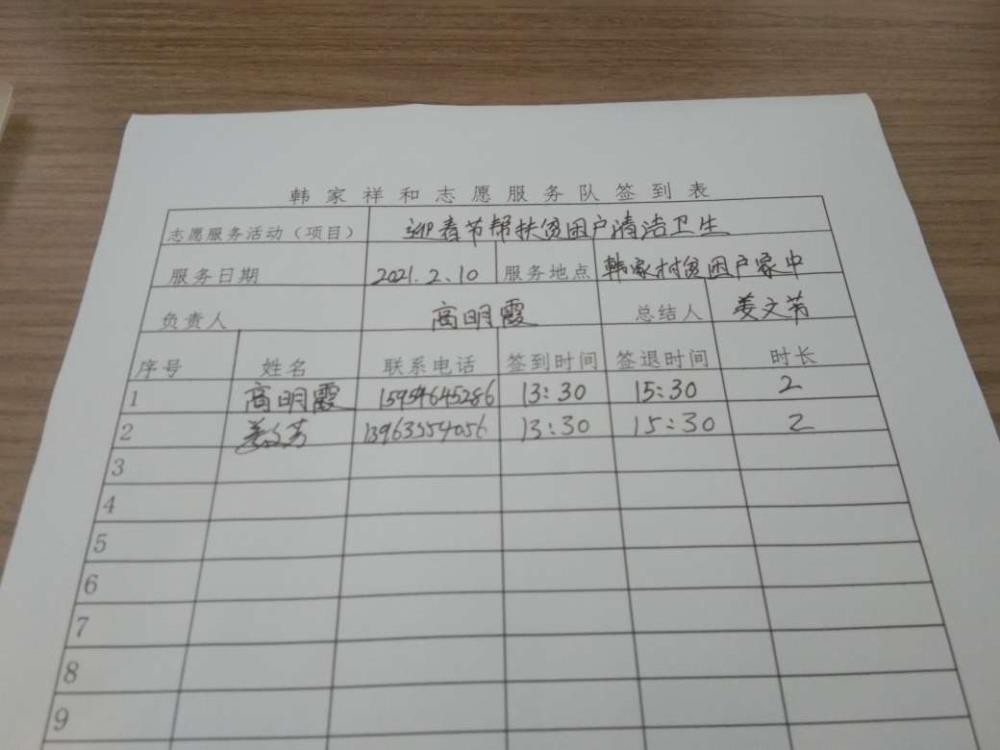 韩家祥和志愿服务队签到表
志愿服务活动（项目） 迎春节帮扶贫困户清洁卫生
服务日期 2021.2.10 服务地点 韩家村贫困户家中
负责人 高明霞 总结人 姜文芳
序号 姓名 联系电话 签到时间 签退时间 时长
1 高明霞 15954645286 13:30 15:30 2
2 姜文芳 13963554056 13:30 15:30 2
3
4
5
6
7
8
9